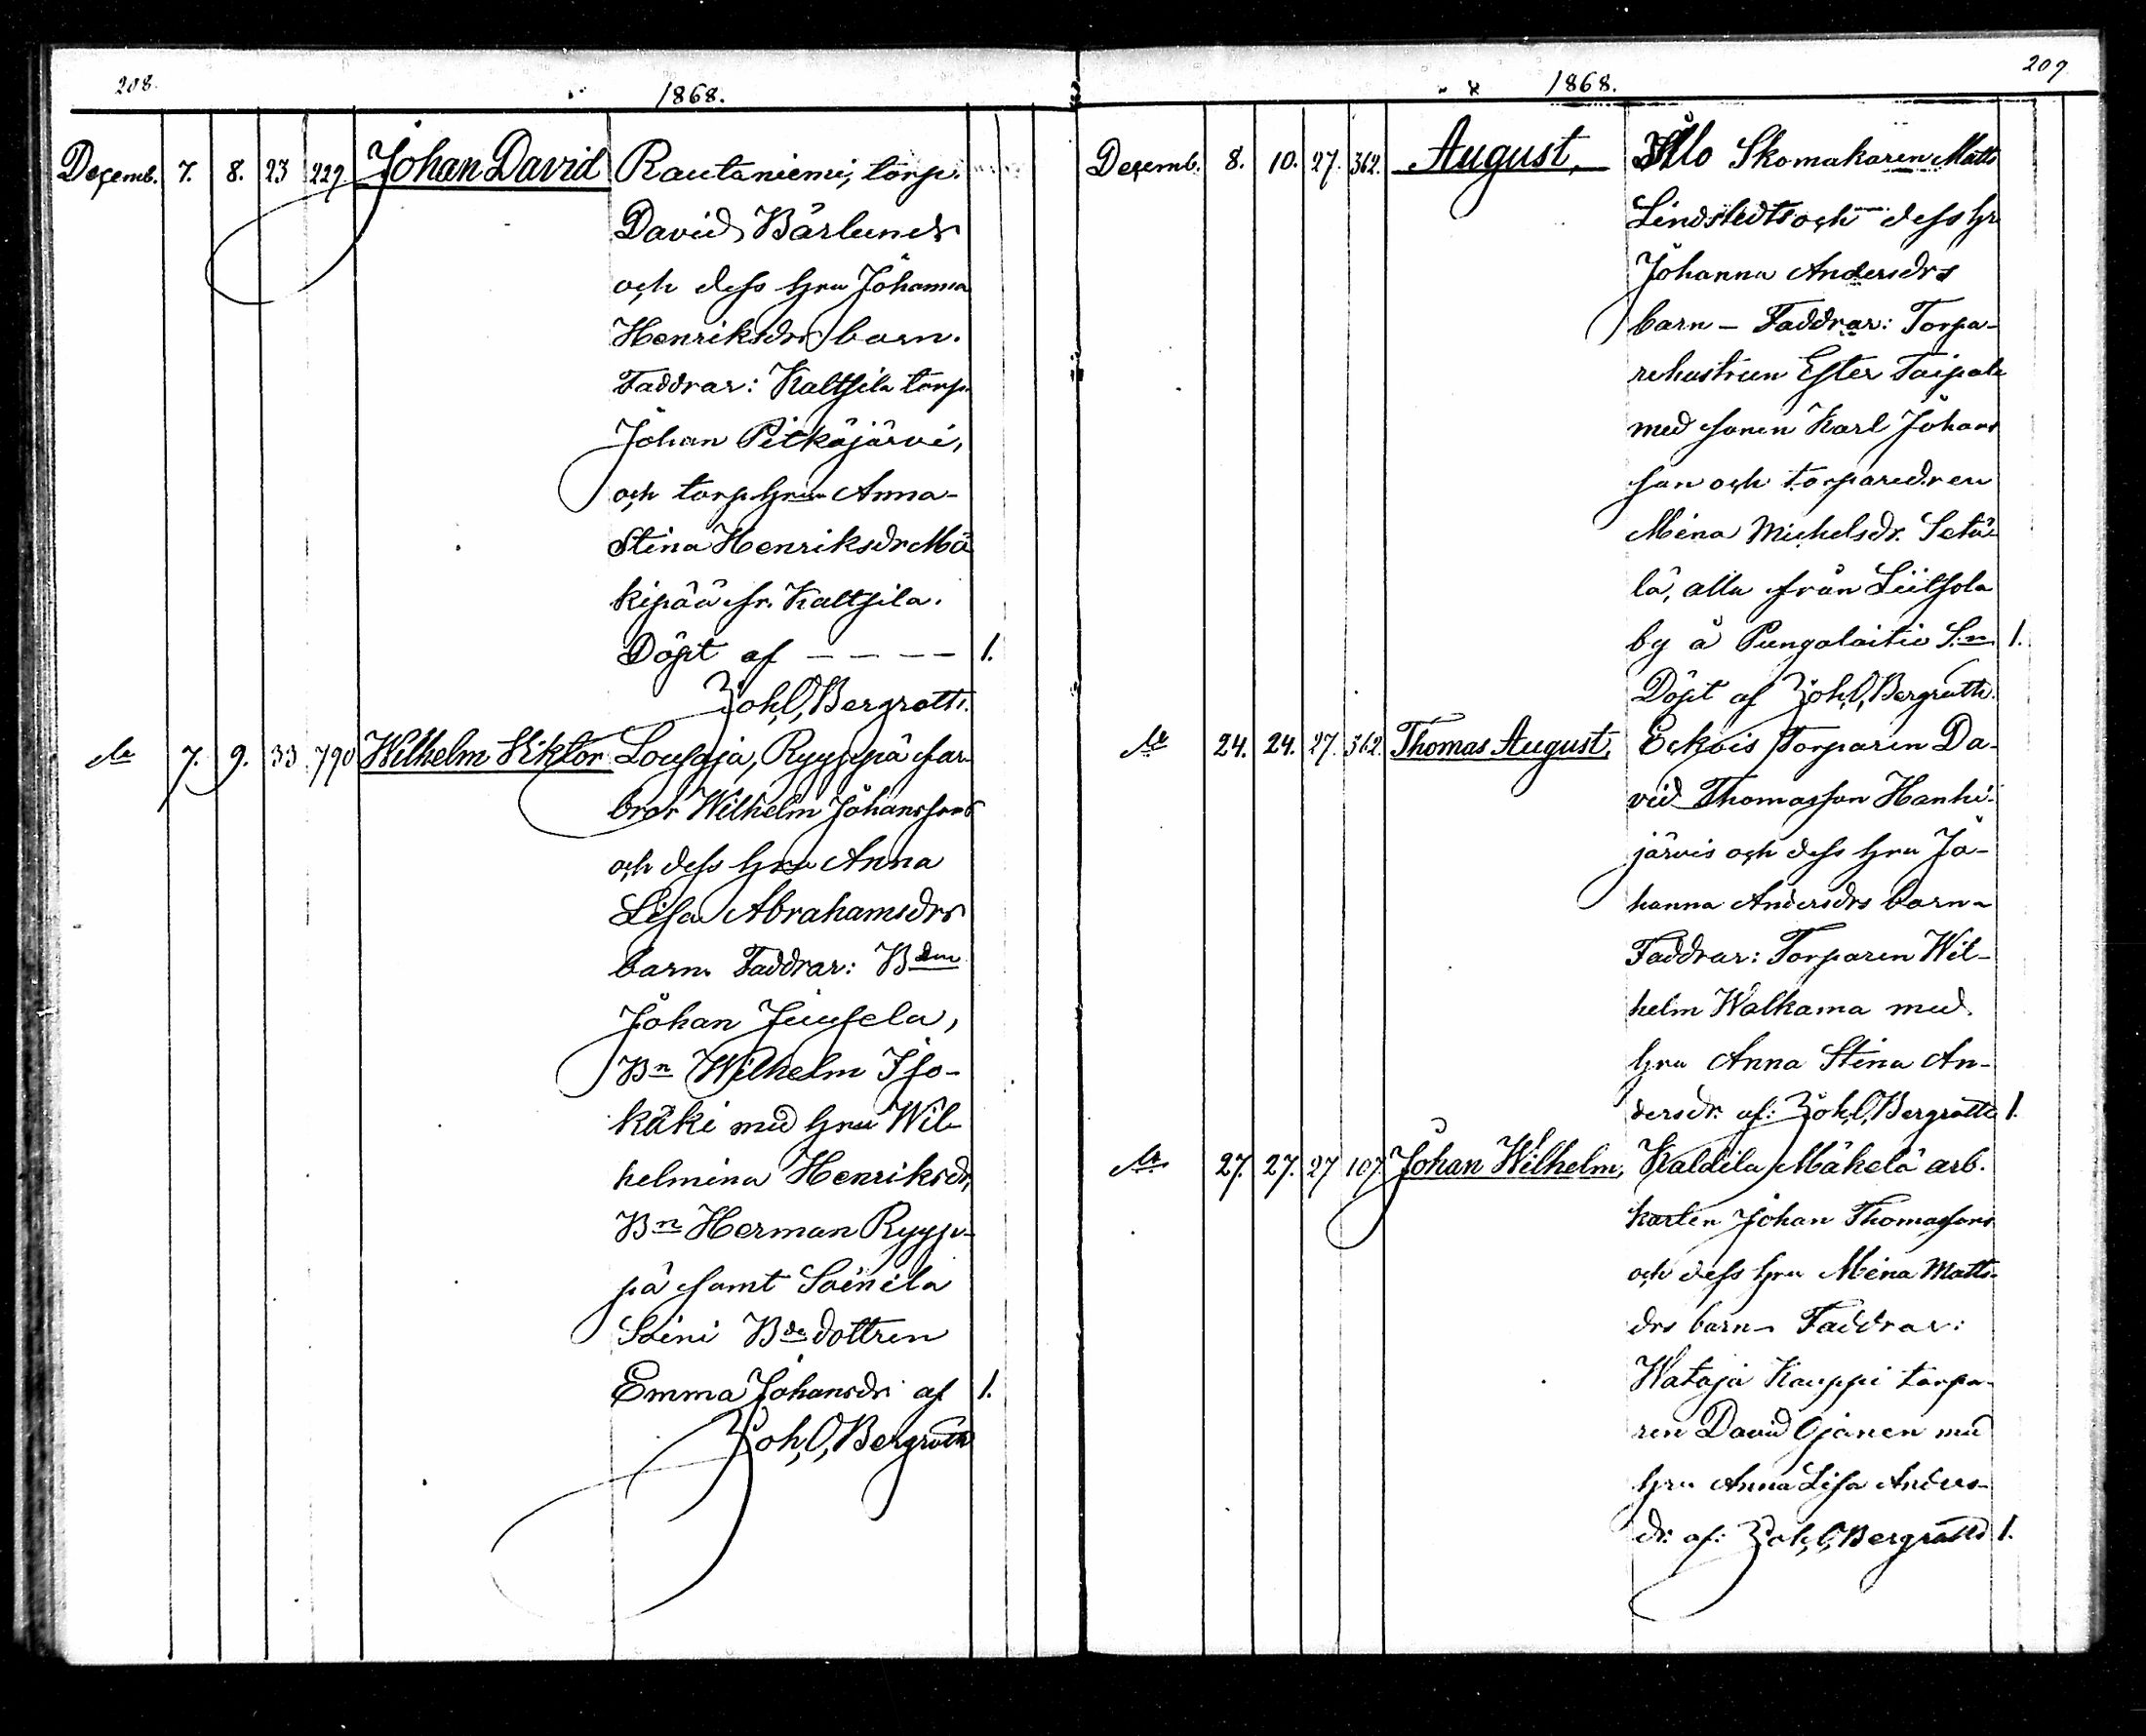 208.
1868.
Decemb. 7. 8. 23 229. Johan David Rautaniemi, torp.
David Bärlunds
och dess hru Johanna
Henriksdrs barn.
Faddrar: Kaltsila torp.
Johan Pitkäjärvi,
och torp. hrun Anna-
Stina Henriksdr Mä
kipää fr. Kaltsila.
Döpt af - - - - 1.
Joh. O. Bergroth.
7. 9. 33 790 Wilhelm Viktor Lousaja, Ryyppä far-
bror Wilhelm Johanssons
och dess hru Anna
Lisa Abrahamsdrs
barn. Faddrar: Bdn
Johan Juusela,
Bn Wilhelm Iso-
käki med hru Wil-
helmina Henriksdr,
Bn Herman Ryyp-
pä samt Soinila
Soini Bde dottren
Emma Johansdr af 1.
Joh. O. Bergroth
209
1868.
Decemb. 8. 10. 27. 362. August, Illo Skomakaren Matts
Lindstedts och dess hr
Johanna Andersdrs
barn - Faddrar: Torpa-
rehustrun Ester Taipale
med sonen Karl Johans
son och torparedren
Mina Michelsdr. Setä-
lä, alla från Liitsola
by å Pungalaitio S:n 1.
Döpt af Joh. O. Bergroth.
24. 24. 27. 362. Thomas August, Eckois Torparen Da-
vid Thomasson Hanhi-
järvis och dess hru Jo-
hanna Andersdrs barn -
Faddrar: Torparen Wil-
helm Walkama med
hru Anna Stina An-
dersdr. af: Joh. O. Bergroth 1.
27. 27. 27 107 Johan Wilhelm, Kaldila Mäkelä arb.
karlen Johan Thomassons
och dess hru Mina Matts-
drs barn - Faddrar:
Wataja Kauppi torpa-
ren David Ojanen med
hru Anna Lisa Anders-
dr. af: Joh. O. Bergroth 1.